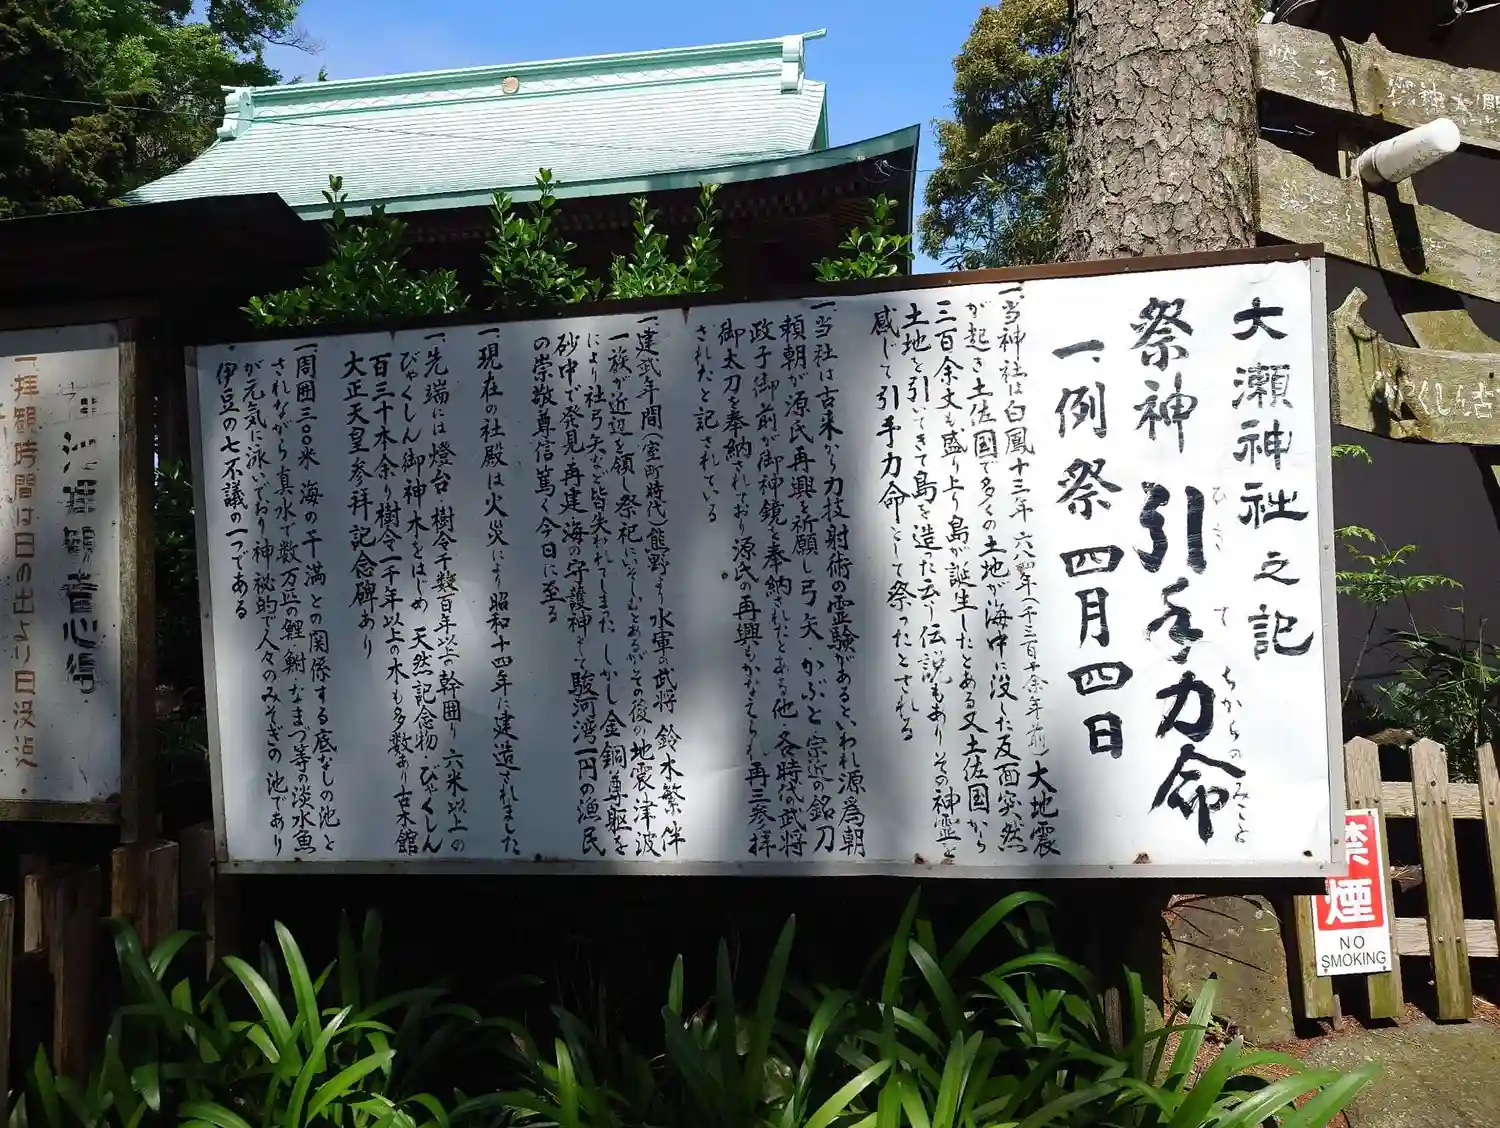 大瀬神社之記
祭神 引手力命
ひき て ちからのみこと
一、例祭 四月四日
一、当神社は白鳳十三年 六八四年(千三百十余年前)大地震
が起き土佐国で多くの土地が海中に没した反面突然
三百余丈も盛り上り島が誕生したとある又土佐国から
土地を引いてきて島を造った云う伝説もありその神霊と
感じて引手力命として祭ったとされる
一、当社は古来から力技射術の霊験があるといわれ源為朝
頼朝が源氏再興を祈願し弓・矢・かぶと・宗近の銘刀
政子御前が御神鏡を奉納されたとある他、各時代の武将
御太刀を奉納されており源氏の再興もかなえられ再三参拝
されたと記されている
一、建武年間(室町時代)熊野より水軍の武将 鈴木繁伴
一族が近辺を領し祭祀にいそしむとあるがその後の地震・津波
により社弓矢など皆失われてしまった しかし金銅尊躯を
砂中で発見 再建 海の守護神として駿河湾一円の漁民
の崇敬尊信篤く今日に至る
一、現在の社殿は火災により昭和十四年に建造されました
一、先端には燈台・樹令千数百年以上の幹囲り 六米以上の
びゃくしん御神木をはじめ 天然記念物・びゃくしん
百三十本余り樹令一千年以上の木も多数あり古木館
大正天皇参拝記念碑あり
一、周囲三〇〇米 海の干満との関係する底なしの池と
されながら真水で数万匹の鯉・鮒・なまづ等の淡水魚
が元気に泳いでおり神秘的で人々のみそぎの池であり
伊豆の七不議の一つである
一、拝観時間は日の出より日没迄
禁煙
NO
SMOKING